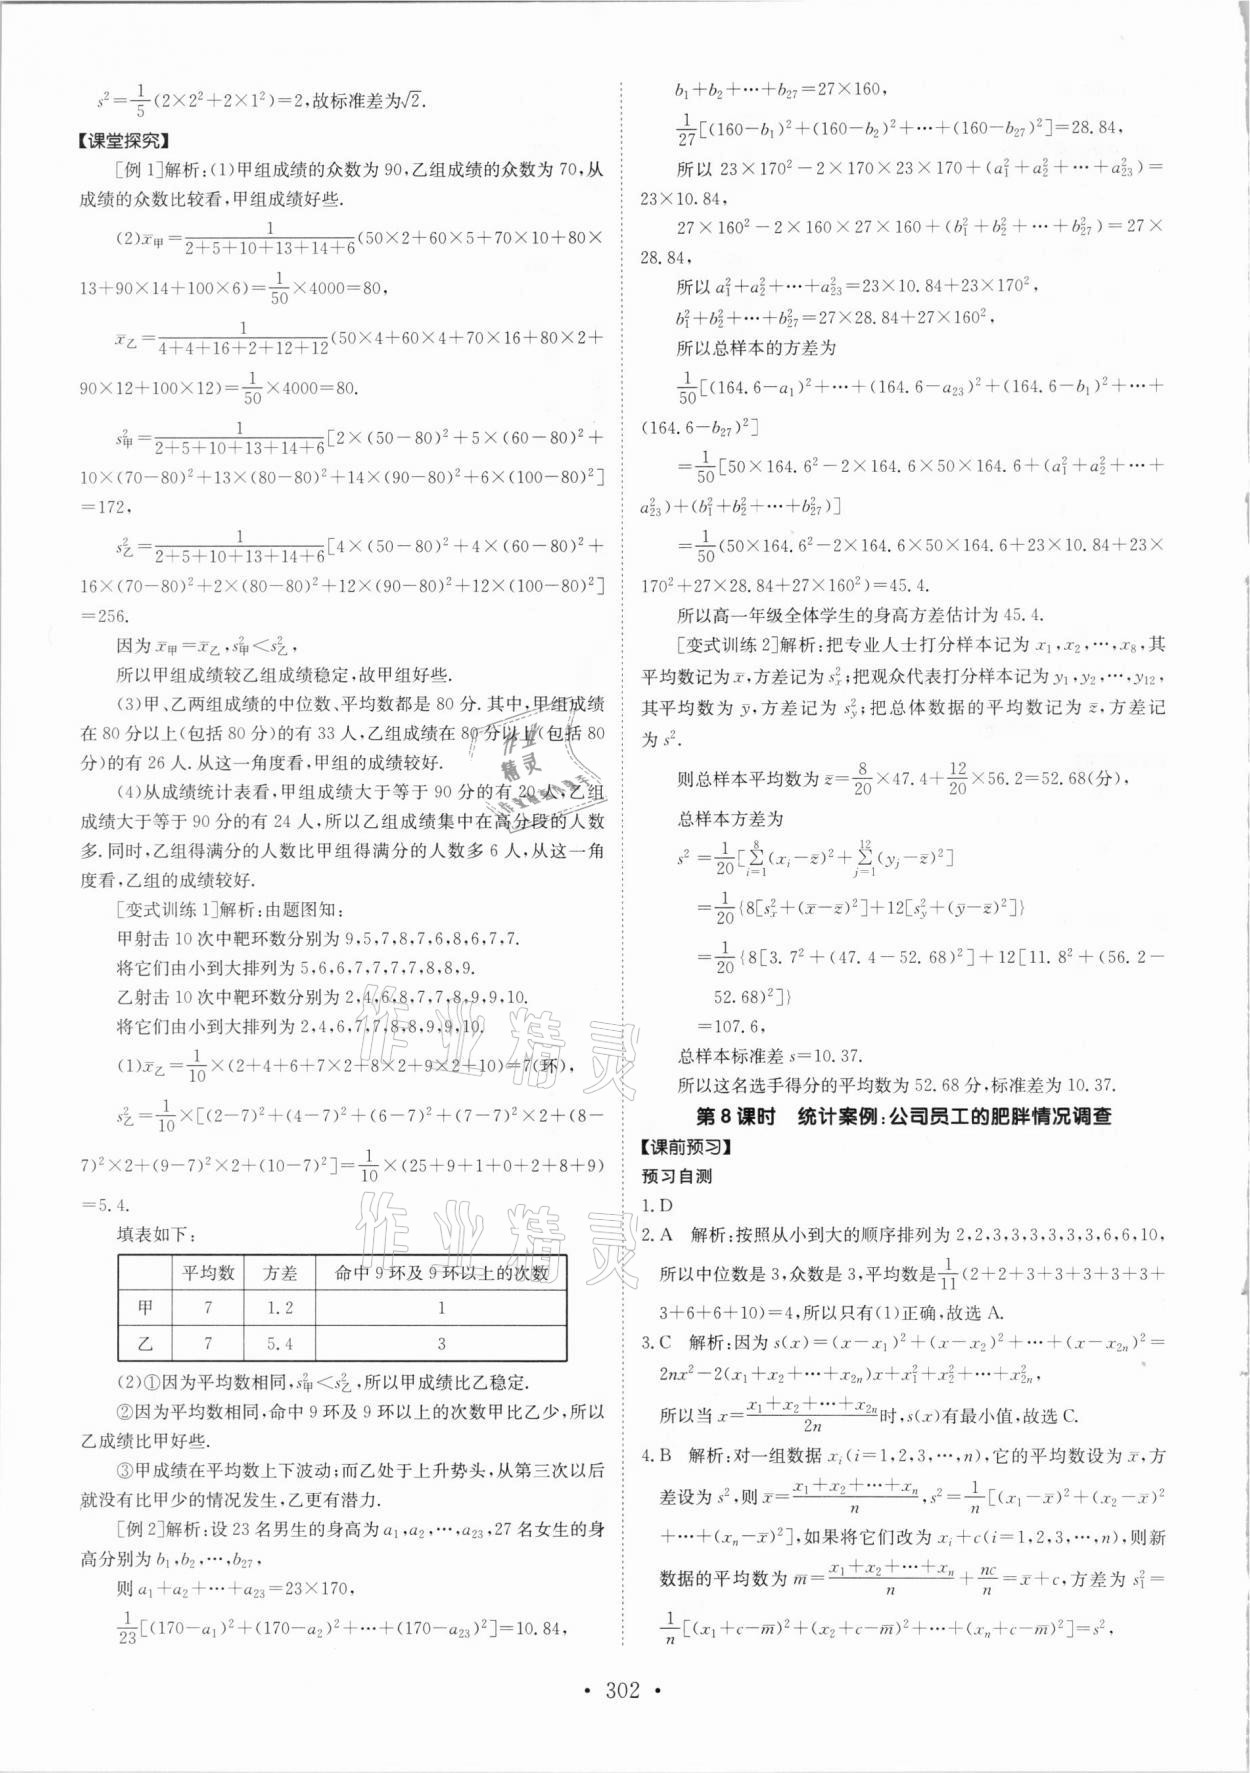 s²=1/5(2×2²+2×1²)=2,故标准差为√2.
【课堂探究】
[例1]解析:(1)甲组成绩的众数为90,乙组成绩的众数为70,从
成绩的众数比较看,甲组成绩好些.
(2)x̄甲=1/(2+5+10+13+14+6)(50×2+60×5+70×10+80×
13+90×14+100×6)=1/50×4000=80,
x̄乙=1/(4+4+16+2+12+12)(50×4+60×4+70×16+80×2+
90×12+100×12)=1/50×4000=80.
s²甲=1/(2+5+10+13+14+6)[2×(50-80)²+5×(60-80)²+
10×(70-80)²+13×(80-80)²+14×(90-80)²+6×(100-80)²]
=172,
s²乙=1/(2+5+10+13+14+6)[4×(50-80)²+4×(60-80)²+
16×(70-80)²+2×(80-80)²+12×(90-80)²+12×(100-80)²]
=256.
因为x̄甲=x̄乙,s²甲<s²乙,
所以甲组成绩较乙组成绩稳定,故甲组好些.
(3)甲、乙两组成绩的中位数、平均数都是80分.其中,甲组成绩
在80分以上(包括80分)的有33人,乙组成绩在80分以上(包括80
分)的有26人.从这一角度看,甲组的成绩较好.
(4)从成绩统计表看,甲组成绩大于等于90分的有20人,乙组
成绩大于等于90分的有24人,所以乙组成绩集中在高分段的人数
多.同时,乙组得满分的人数比甲组得满分的人数多6人,从这一角
度看,乙组的成绩较好.
[变式训练1]解析:由题图知:
甲射击10次中靶环数分别为9,5,7,8,7,6,8,6,7,7.
将它们由小到大排列为5,6,6,7,7,7,7,8,8,9.
乙射击10次中靶环数分别为2,4,6,8,7,7,8,9,9,10.
将它们由小到大排列为2,4,6,7,7,8,8,9,9,10.
(1)x̄乙=1/10×(2+4+6+7×2+8×2+9×2+10)=7(环),
s²乙=1/10×[(2-7)²+(4-7)²+(6-7)²+(7-7)²×2+(8-
7)²×2+(9-7)²×2+(10-7)²]=1/10×(25+9+1+0+2+8+9)
=5.4.
填表如下:
平均数 方差 命中9环及9环以上的次数
甲 7 1.2 1
乙 7 5.4 3
(2)①因为平均数相同,s²甲<s²乙,所以甲成绩比乙稳定.
②因为平均数相同,命中9环及9环以上的次数甲比乙少,所以
乙成绩比甲好些.
③甲成绩在平均数上下波动;而乙处于上升势头,从第三次以后
就没有比甲少的情况发生,乙更有潜力.
[例2]解析:设23名男生的身高为a₁,a₂,⋯,a₂₃,27名女生的身
高分别为b₁,b₂,⋯,b₂₇,
则a₁+a₂+⋯+a₂₃=23×170,
1/23[(170-a₁)²+(170-a₂)²+⋯+(170-a₂₃)²]=10.84,
b₁+b₂+⋯+b₂₇=27×160,
1/27[(160-b₁)²+(160-b₂)²+⋯+(160-b₂₇)²]=28.84,
所以23×170²-2×170×23×170+(a₁²+a₂²+⋯+a₂₃²)=
23×10.84,
27×160²-2×160×27×160+(b₁²+b₂²+⋯+b₂₇²)=27×
28.84,
所以a₁²+a₂²+⋯+a₂₃²=23×10.84+23×170²,
b₁²+b₂²+⋯+b₂₇²=27×28.84+27×160²,
所以总样本的方差为
1/50[(164.6-a₁)²+⋯+(164.6-a₂₃)²+(164.6-b₁)²+⋯+
(164.6-b₂₇)²]
=1/50[50×164.6²-2×164.6×50×164.6+(a₁²+a₂²+⋯+
a₂₃²)+(b₁²+b₂²+⋯+b₂₇²)]
=1/50(50×164.6²-2×164.6×50×164.6+23×10.84+23×
170²+27×28.84+27×160²)=45.4.
所以高一年级全体学生的身高方差估计为45.4.
[变式训练2]解析:把专业人士打分样本记为x₁,x₂,⋯,x₈,其
平均数记为x̄,方差记为sₓ²;把观众代表打分样本记为y₁,y₂,⋯,y₁₂,
其平均数为ȳ,方差记为s²y;把总体数据的平均数记为z̄,方差记
为s².
则总样本平均数为z̄=8/20×47.4+12/20×56.2=52.68(分),
总样本方差为
s²=1/20[∑(i=1→8)(xᵢ-z̄)²+∑(j=1→12)(yⱼ-z̄)²]
=1/20{8[sₓ²+(x̄-z̄)²]+12[s²y+(ȳ-z̄)²]}
=1/20{8[3.7²+(47.4-52.68)²]+12[11.8²+(56.2-
52.68)²]}
=107.6,
总样本标准差s=10.37.
所以这名选手得分的平均数为52.68分,标准差为10.37.
第8课时 统计案例:公司员工的肥胖情况调查
【课前预习】
预习自测
1.D
2.A 解析:按照从小到大的顺序排列为2,2,3,3,3,3,3,3,6,6,10,
所以中位数是3,众数是3,平均数是1/11(2+2+3+3+3+3+3+
3+6+6+10)=4,所以只有(1)正确,故选A.
3.C 解析:因为s(x)=(x-x₁)²+(x-x₂)²+⋯+(x-x₂ₙ)²=
2nx²-2(x₁+x₂+⋯+x₂ₙ)x+x₁²+x₂²+⋯+x₂ₙ²,
所以当x=(x₁+x₂+⋯+x₂ₙ)/2n时,s(x)有最小值,故选C.
4.B 解析:对一组数据xᵢ(i=1,2,3,⋯,n),它的平均数设为x̄,方
差设为s²,则x̄=(x₁+x₂+⋯+xₙ)/n,s²=1/n[(x₁-x̄)²+(x₂-x̄)²
+⋯+(xₙ-x̄)²],如果将它们改为xᵢ+c(i=1,2,3,⋯,n),则新
数据的平均数为m̄=(x₁+x₂+⋯+xₙ)/n+nc/n=x̄+c,方差为s₁²=
1/n[(x₁+c-m̄)²+(x₂+c-m̄)²+⋯+(xₙ+c-m̄)²]=s²,
• 302 •
作业精灵
作业精灵
作业
精灵